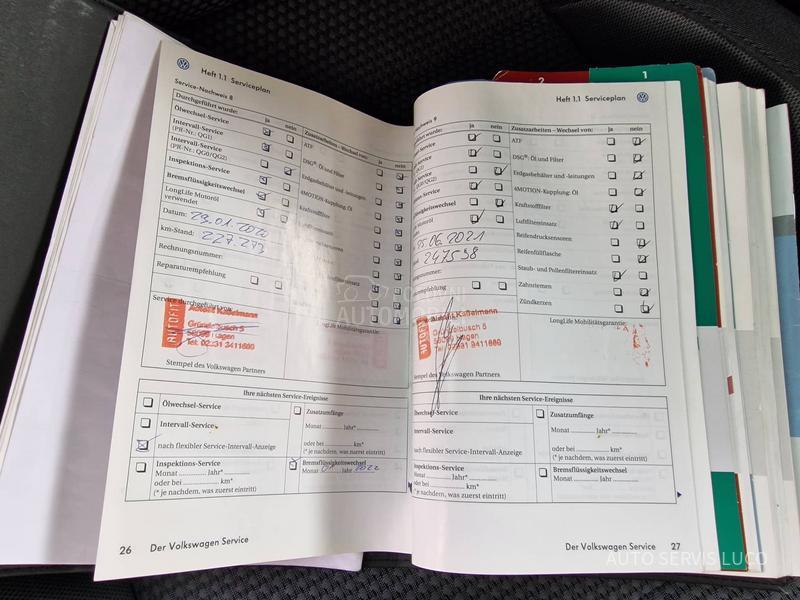 Heft 1.1 Serviceplan
Service-Nachweis 8
Durchgeführt wurde: ja nein
Ölwechsel-Service
Intervall-Service
(PR-Nr.: QG1)
Intervall-Service
(PR-Nr.: QG0/QG2)
Inspektions-Service
Bremsflüssigkeitswechsel
LongLife Motoröl
verwendet
Datum: 29.01.2020
km-Stand: 227.273
Rechnungsnummer:
Reparaturempfehlung
Zusatzarbeiten - Wechsel von: ja nein
ATF
DSG®: Öl und Filter
Erdgasbehälter und -leitungen
4MOTION-Kupplung: Öl
Kraftstofffilter
Service durchgeführt von:
AUTOFIT
Gründelbusch 5
Hagen
Tel. 02331 3411660
LongLife Mobilitätsgarantie:
Stempel des Volkswagen Partners
Ihre nächsten Service-Ereignisse
Ölwechsel-Service
Intervall-Service
nach flexibler Service-Intervall-Anzeige
Inspektions-Service
Monat Jahr*
oder bei km*
(* je nachdem, was zuerst eintritt)
Zusatzumfänge
Monat Jahr*
oder bei km*
(* je nachdem, was zuerst eintritt)
Bremsflüssigkeitswechsel
Monat 01 Jahr 2022
26 Der Volkswagen Service
2 1
Heft 1.1 Serviceplan
9
wurde: ja nein
Zusatzarbeiten – Wechsel von: ja nein
ATF
DSG®: Öl und Filter
Erdgasbehälter und -leitungen
4MOTION-Kupplung: Öl
Kraftstofffilter
Luftfiltereinsatz
Reifendrucksensoren
Reifenfüllflasche
Staub- und Pollenfiltereinsatz
Zahnriemen
Zündkerzen
06.2021
247598
AUTOFIT
Gründelbusch 5
Hagen
LongLife Mobilitätsgarantie:
Stempel des Volkswagen Partners
Ihre nächsten Service-Ereignisse
Ölwechsel-Service
Intervall-Service
nach flexibler Service-Intervall-Anzeige
Inspektions-Service
Monat Jahr*
oder bei km*
(* je nachdem, was zuerst eintritt)
Zusatzumfänge
Monat Jahr*
oder bei km*
(* je nachdem, was zuerst eintritt)
Bremsflüssigkeitswechsel
Monat Jahr
Der Volkswagen Service 27
AUTO SERVIS LUCO